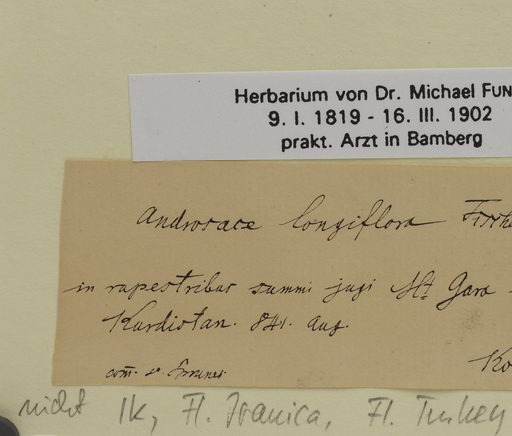 Herbarium von Dr. Michael FUN
9. I. 1819 - 16. III. 1902
prakt. Arzt in Bamberg
Androsace longiflora Fische
in rupestribus summi jugi Mt Gara
Kurdistan. 841. Aug.
com. Ko
nicht Ik, Fl. Iranica, Fl. Turkey